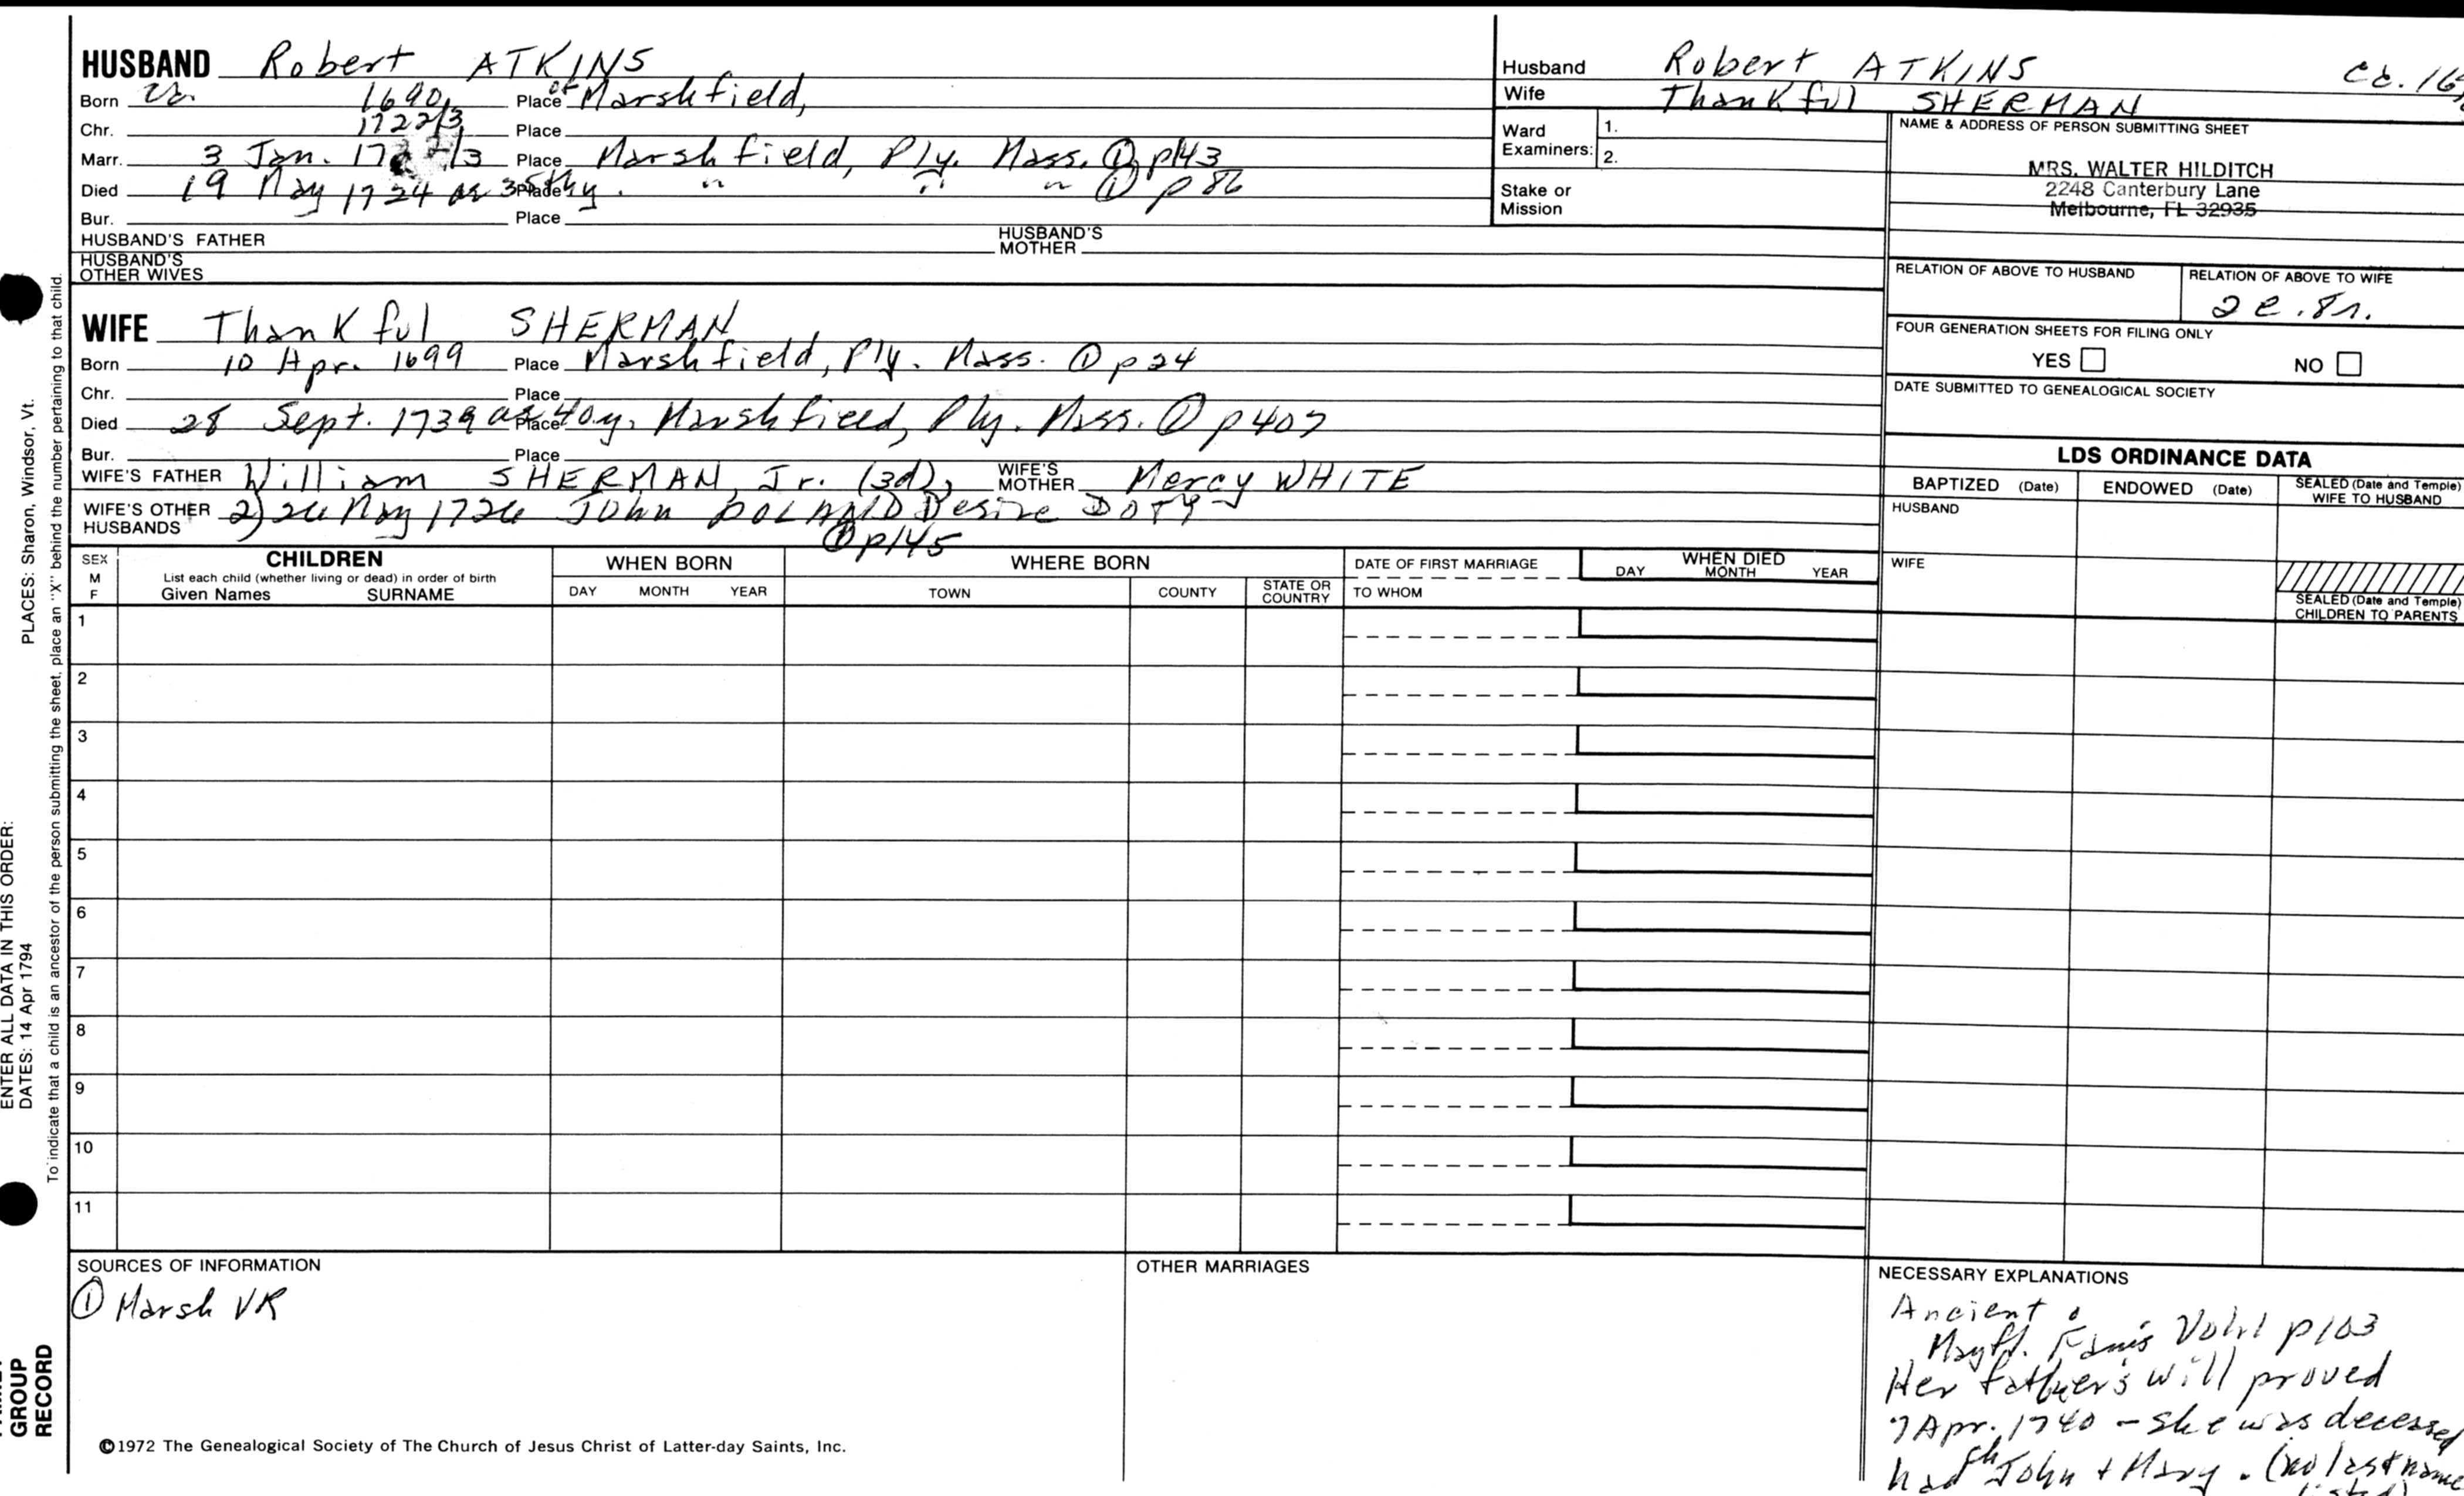 HUSBAND Robert ATKINS
Born ca. 1690, Place of Marshfield,
Chr. 1722/3 Place
Marr. 3 Jan. 172 /3 Place Marshfield, Ply. Mass. ① p143
Died 19 May 1724 Place " " " ① p 86
Bur. Place
HUSBAND'S FATHER HUSBAND'S MOTHER
HUSBAND'S OTHER WIVES
Husband Robert ATKINS ca. 16
Wife Thankful SHERMAN
Ward Examiners: 1.
2.
Stake or Mission
NAME & ADDRESS OF PERSON SUBMITTING SHEET
MRS. WALTER HILDITCH
2248 Canterbury Lane
Melbourne, FL 32935
RELATION OF ABOVE TO HUSBAND RELATION OF ABOVE TO WIFE
FOUR GENERATION SHEETS FOR FILING ONLY
YES NO
DATE SUBMITTED TO GENEALOGICAL SOCIETY
WIFE Thankful SHERMAN
Born 10 Apr. 1699 Place Marshfield, Ply. Mass. ① p 24
Chr. Place
Died 28 Sept. 1739 as 40y. Place Marshfield, Ply. Mass. ① p 407
Bur. Place
WIFE'S FATHER William SHERMAN, Jr. (3d), WIFE'S MOTHER Mercy WHITE
WIFE'S OTHER HUSBANDS 2) May 1726 John Desire DOTY
① p145
LDS ORDINANCE DATA
BAPTIZED (Date) ENDOWED (Date) SEALED (Date and Temple) WIFE TO HUSBAND
HUSBAND
WIFE
SEALED (Date and Temple) CHILDREN TO PARENTS
SEX M F
CHILDREN
List each child (whether living or dead) in order of birth
Given Names SURNAME
WHEN BORN
DAY MONTH YEAR
WHERE BORN
TOWN COUNTY STATE OR COUNTRY
DATE OF FIRST MARRIAGE
TO WHOM
WHEN DIED
DAY MONTH YEAR
1
2
3
4
5
6
7
8
9
10
11
SOURCES OF INFORMATION
① Marsh VR
OTHER MARRIAGES
NECESSARY EXPLANATIONS
Ancient
Mayfl. Fam's Vol p103
Her father's will proved
7 Apr. 1740 - she was deceased
had ch John + Mary. (no last name
listed)
©1972 The Genealogical Society of The Church of Jesus Christ of Latter-day Saints, Inc.
ENTER ALL DATA IN THIS ORDER:
DATES: 14 Apr 1794
PLACES: Sharon, Windsor, Vt.
To indicate that a child is an ancestor of the person submitting the sheet, place an "X" behind the number pertaining to that child.
GROUP
RECORD